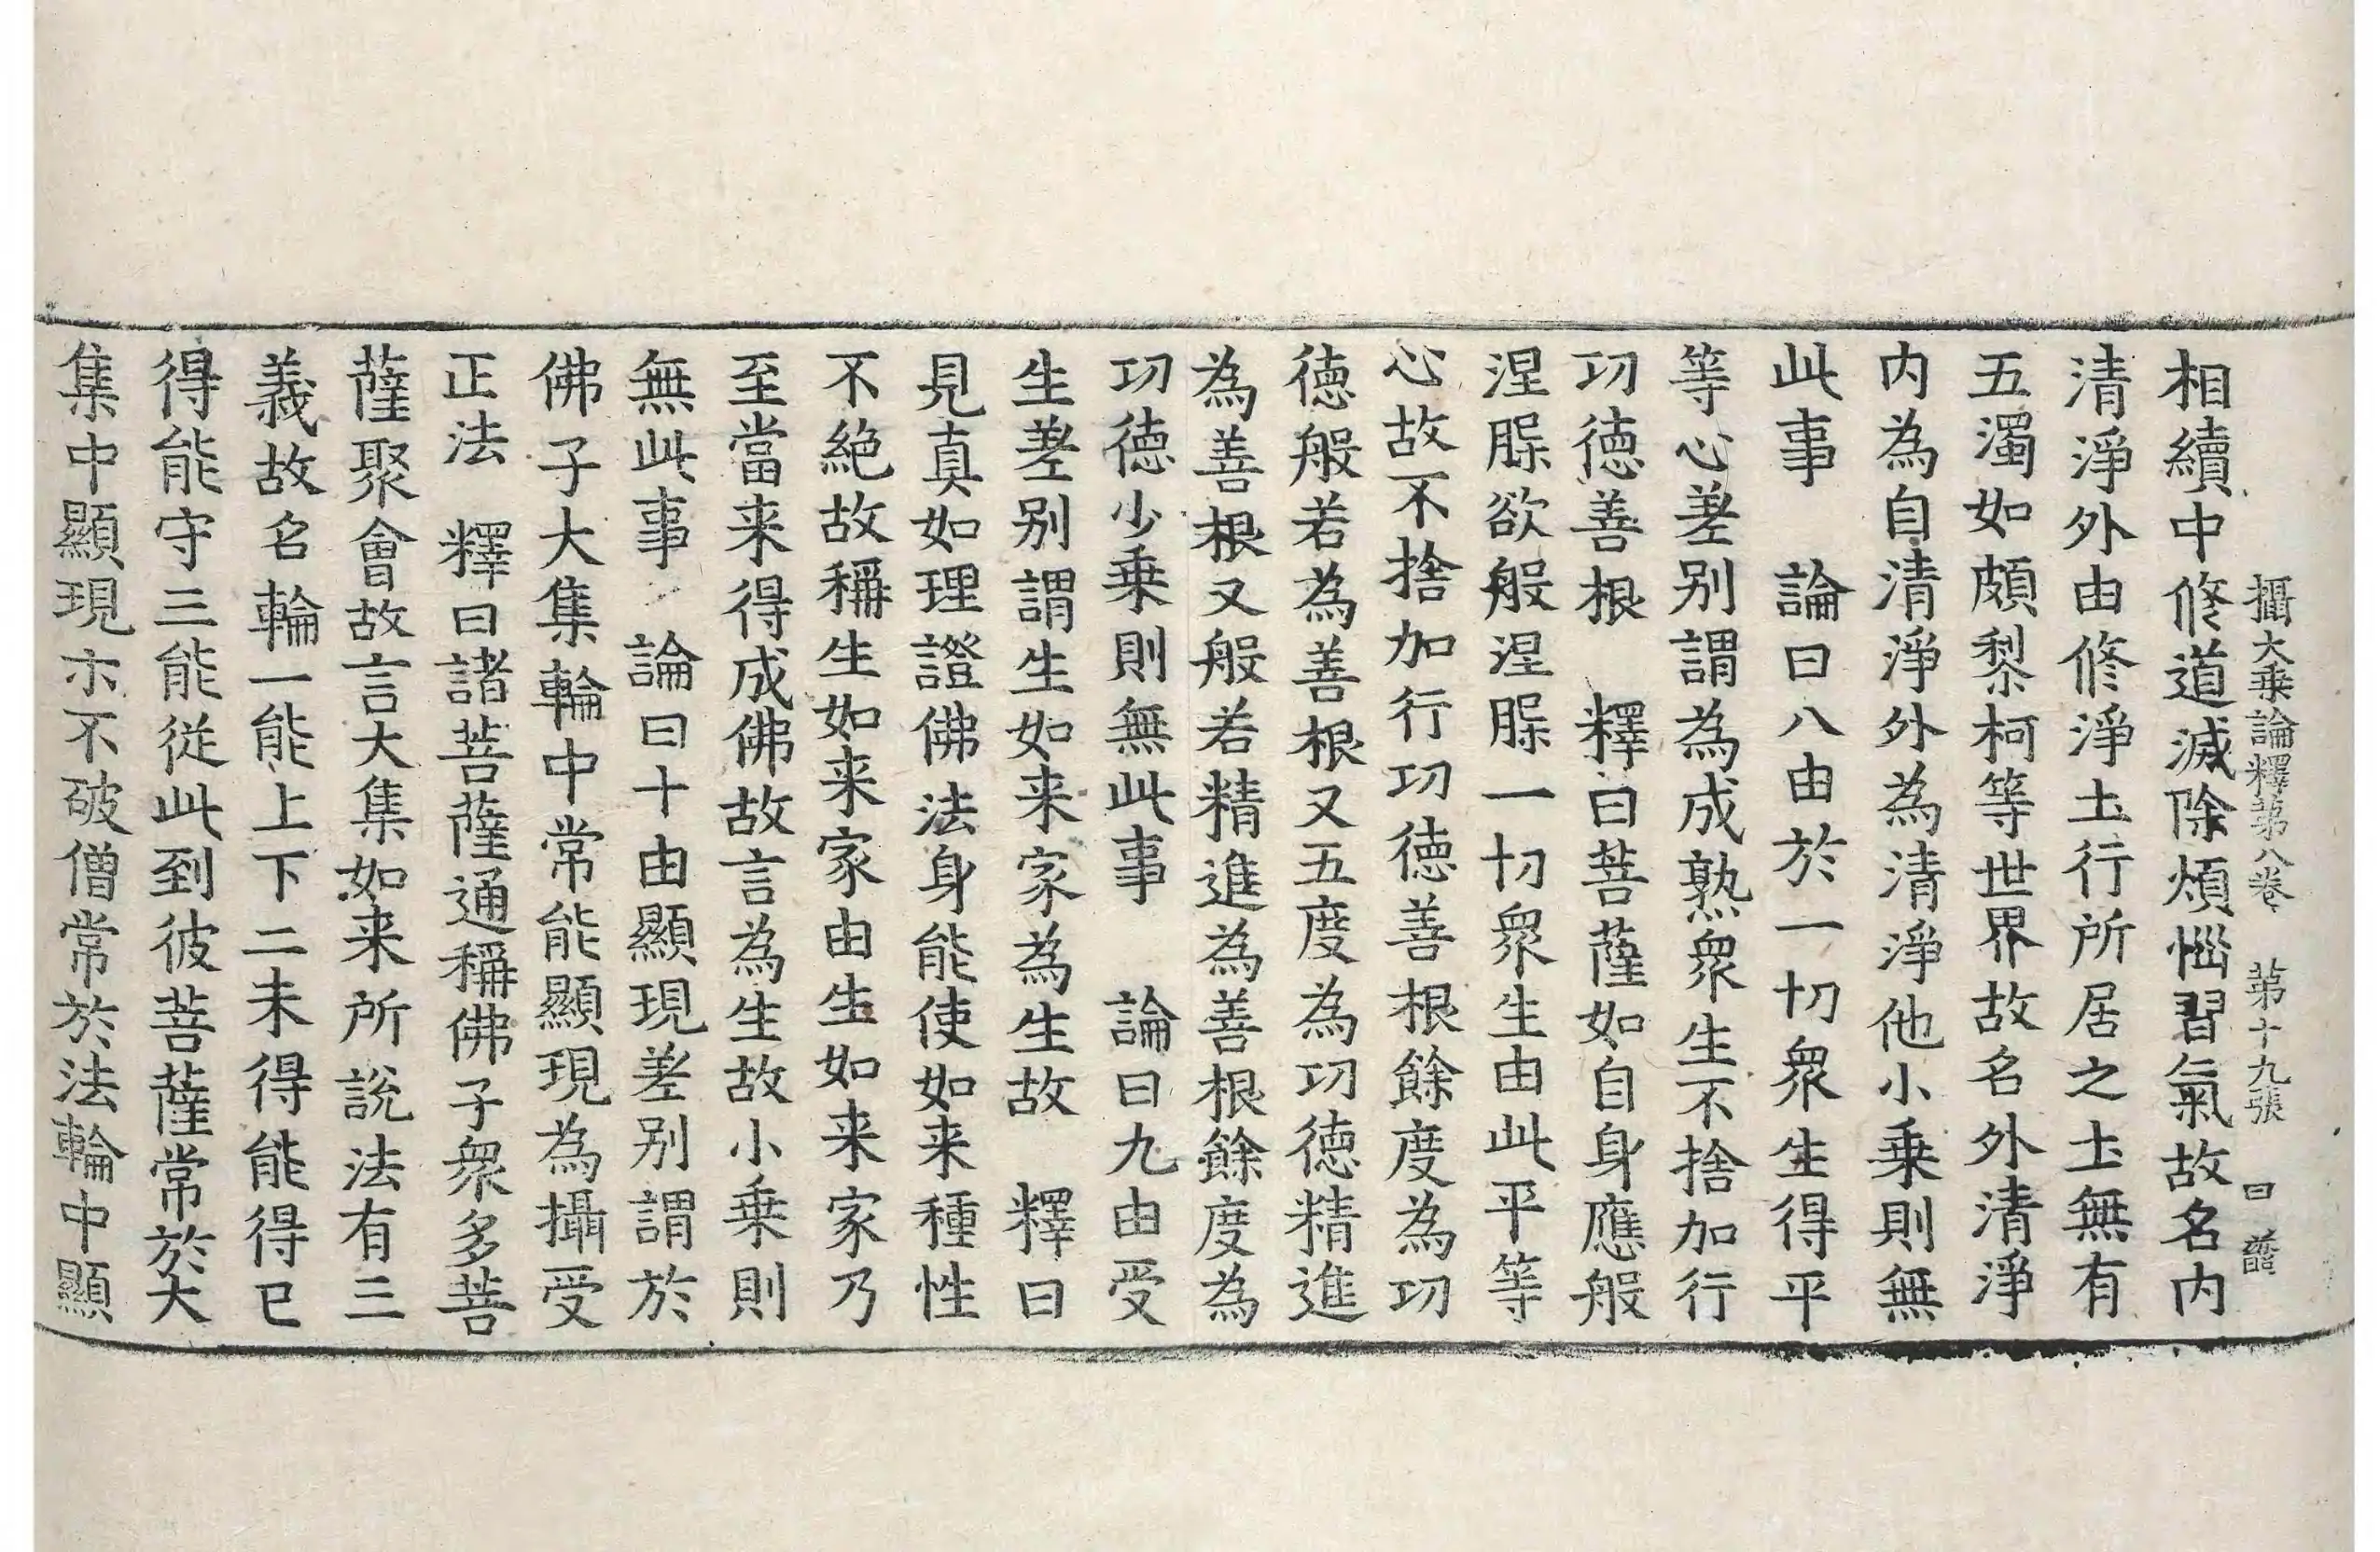 攝大乗論釋第八卷　第十九張　曰
相續中修道滅除煩惱習氣故名内
清淨外由修淨土行所居之土無有
五濁如頗黎柯等世界故名外清淨
内為自清淨外為清淨他小乗則無
此事　論曰八由於一切衆生得平
等心差别謂為成熟衆生不捨加行
功徳善根　釋曰菩薩如自身應般
涅脲欲般涅脲一切衆生由此平等
心故不捨加行功徳善根餘度為功
徳般若為善根又五度為功徳精進
為善根又般若精進為善根餘度為
功徳少乗則無此事　論曰九由受
生差别謂生如来家為生故　釋曰
見真如理證佛法身能使如来種性
不絶故稱生如来家由生如来家乃
至當来得成佛故言為生故小乗則
無此事　論曰十由顯現差别謂於
佛子大集輪中常能顯現為攝受
正法　釋曰諸菩薩通稱佛子衆多菩
薩聚會故言大集如来所説法有三
義故名輪一能上下二未得能得已
得能守三能從此到彼菩薩常於大
集中顯現亦不破僧常於法輪中顯